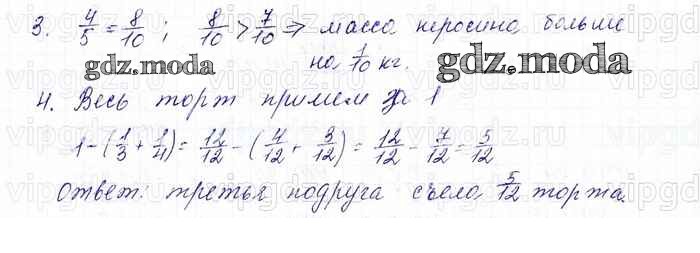 3. 4/5 = 8/10 ; 8/10 > 7/10 ⇒ масса керосина больше
на 1/10 кг.
gdz.moda gdz.moda
4. Весь торт примем за 1
1-(1/3 + 1/4) = 12/12 - (4/12 + 3/12) = 12/12 - 7/12 = 5/12
Ответ: третья подруга съела 5/12 торта.